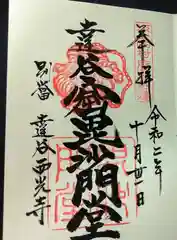 奉拝
令和二年
十月廿一日
達谷窟毘沙門堂
別當
達谷西光寺